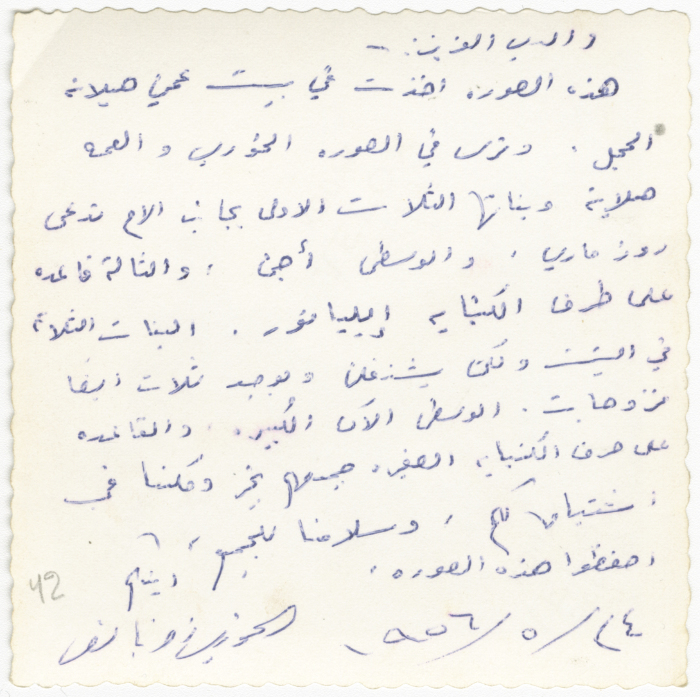 والدي العزيز: –
هذه الصوره اخذت في بيت عمتي هيلانه
الجمل . وترى في الصوره الخوري و العمه
هيلانه وبناتها الثلاث الاولى بجانب الام تدعى
روز ماري ، والوسطى أجن ، والثالثة قاعده
على طرف الكنبايه إيليانور . البنات الثلاثة
في البيت ولكن يشتغلن ويوجد ثلاث ايضا
متزوجات . الوسطى الآن الكبيره ، والقاعده
على طرف الكنبايه الصغيره جميعهم بخير وكلنا في
اشتياق لكم ، وسلامنا للجميع ،
احفظوا هذه الصوره . ابنكم
42
٢٤/٥/١٩٥٦ الخوري